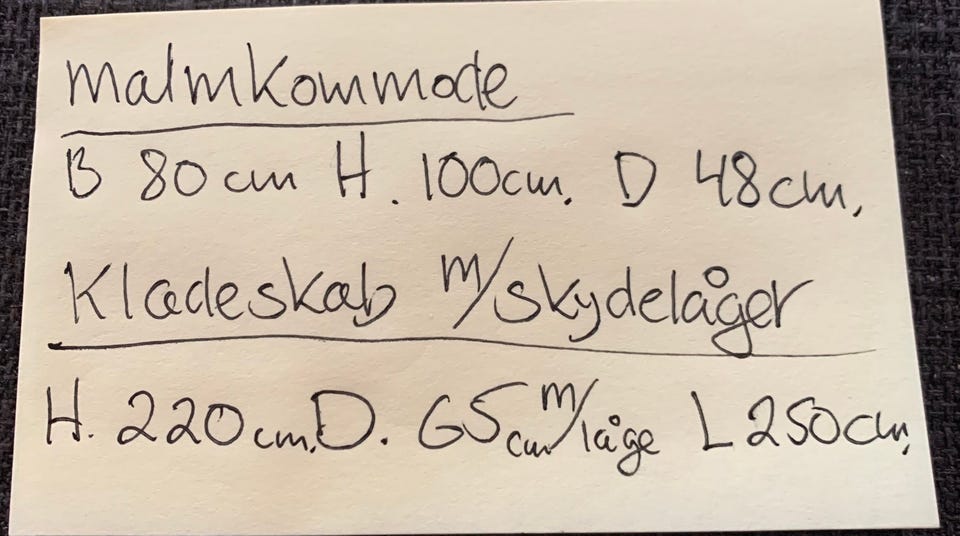 Malmkommode
B 80cm H. 100cm. D 48cm.
Klædeskab m/skydelåger
H. 220cm. D. 65cm m/låge L 250cm.